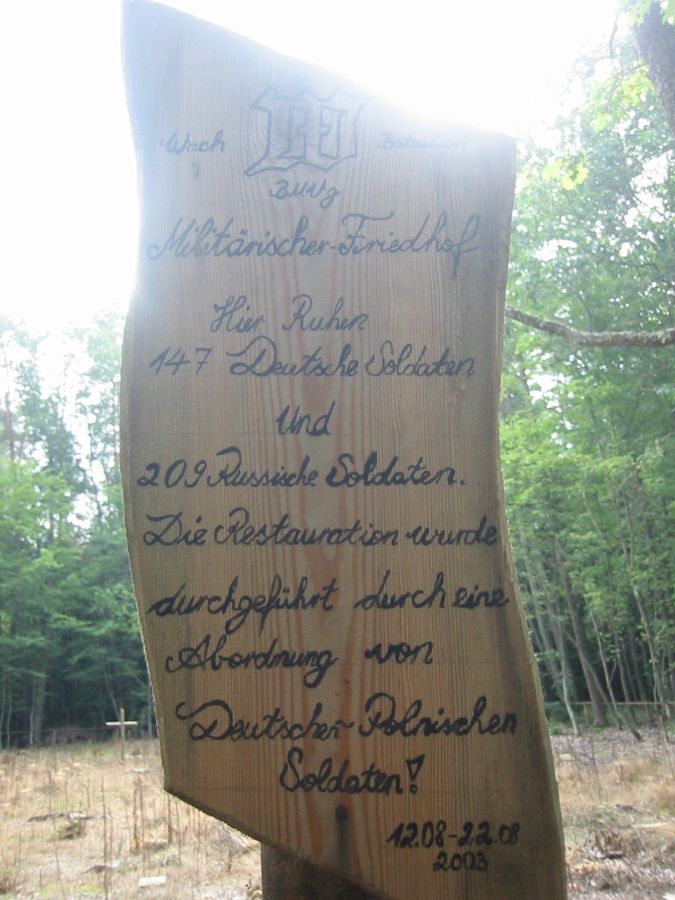 Wach Bataillon
BMVg
Militärischer-Friedhof
Hier Ruhen
147 Deutsche Soldaten
Und
209 Russische Soldaten.
Die Restauration wurde
durchgeführt durch eine
Abordnung von
Deutschen-Polnischen
Soldaten!
12.08-22.08
2003